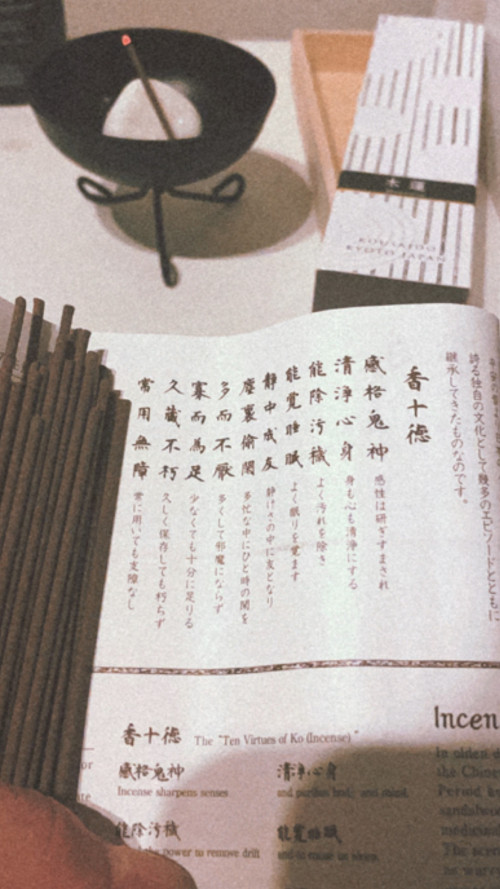 木蓮
KOUSAIDO
KYOTO JAPAN
誇る独自の文化として幾多のエピソードとともに
継承してきたものなのです。
香十徳
感格鬼神 感性は研ぎすまされ
清浄心身 身も心も清浄にする
能除汚穢 よく汚れを除き
能覚睡眠 よく眠りを覚ます
静中成友 静けさの中に友となり
塵裏偸閑 多忙な中にひと時の閑を
多而不厭 多くして邪魔にならず
寡而為足 少なくても十分に足りる
久蔵不朽 久しく保存しても朽ちず
常用無障 常に用いても支障なし
香十徳 The "Ten Virtues of Ko (Incense)"
感格鬼神
Incense sharpens senses
清浄心身
and purifies body and mind.
能除汚穢
the power to remove
能覚睡眠
Incen
In olden
the Chine
Period
sandalwoo
medicin